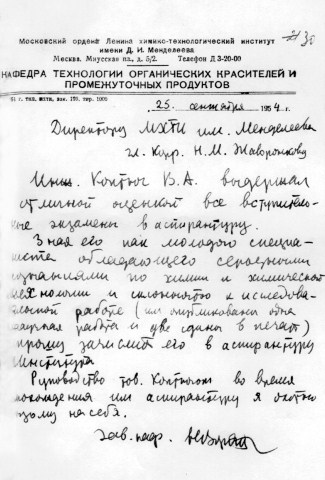 № 30
Московский ордена Ленина химико-технологический институт
имени Д. И. Менделеева
Москва. Миусская пл., д. 5/2. Телефон Д 3-20-00
КАФЕДРА ТЕХНОЛОГИИ ОРГАНИЧЕСКИХ КРАСИТЕЛЕЙ И
ПРОМЕЖУТОЧНЫХ ПРОДУКТОВ
25. сентября 1954 г.
Директору МХТИ им. Менделеева
Н. М. Жаворонкову
Инж. Коптюг В.А. выдержал
отличной оценкой все вступитель-
ные экзамены в аспирантуру.
Зная его как молодого специа-
листа обладающего серьезными
знаниями по химии и химической
технологии и склонностью к исследова-
тельской работе (им опубликована одна
научная работа и две сданы в печать)
прошу зачислить его в аспирантуру
института
Руководство тов. Коптюгом во время
прохождения им аспирантуры я охотно
возьму на себя.
Зав. каф.